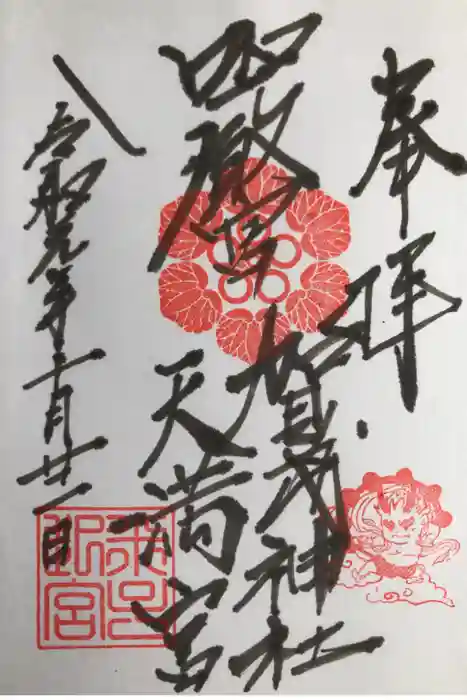 奉拝
嚴島
賀茂神社
天満宮
令和元年十一月廿一日